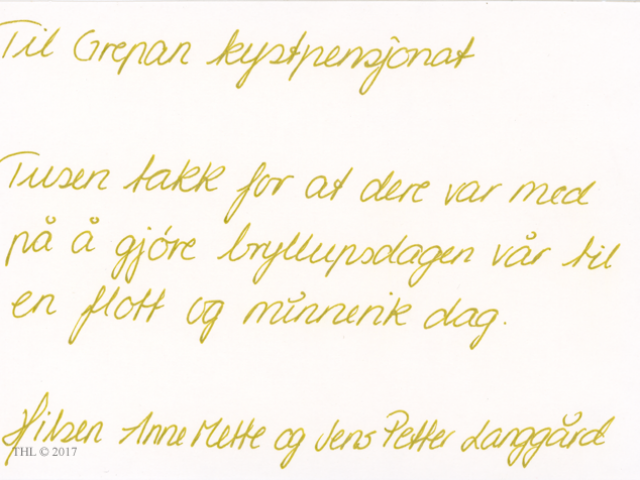 Til Grepan kystpensjonat
Tusen takk for at dere var med
på å gjøre bryllupsdagen vår til
en flott og minnerik dag.
Hilsen Anne Mette og Jens Petter Langgård
THL © 2017